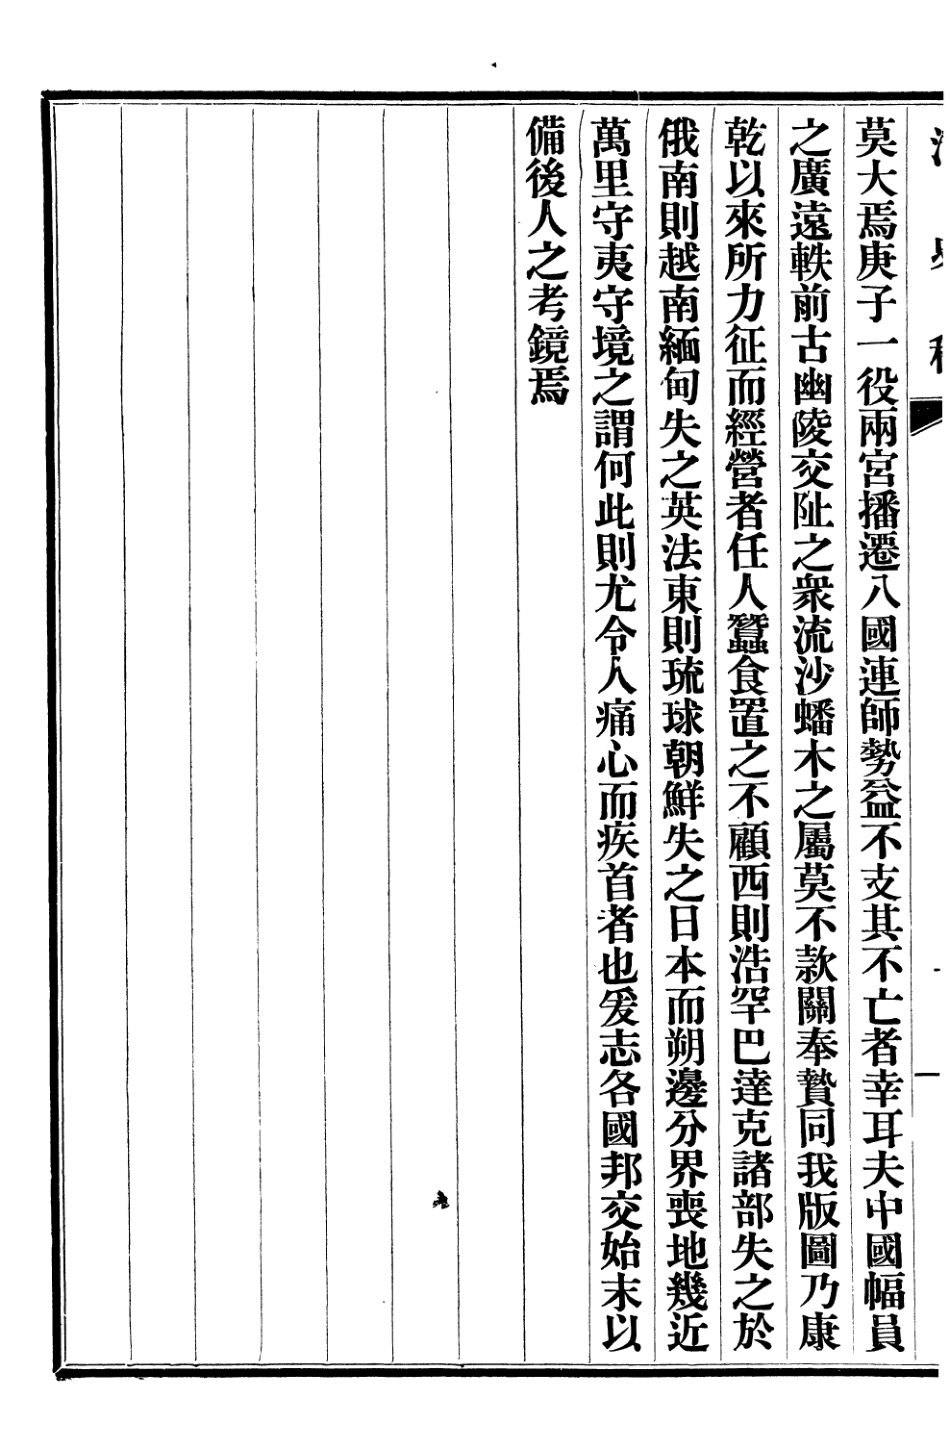 莫大焉庚子一役兩宮播遷八國連師勢益不支其不亡者幸耳夫中國幅員
之廣遠軼前古幽陵交阯之衆流沙蟠木之屬莫不款關奉贄同我版圖乃康
乾以來所力征而經營者任人蠶食置之不顧西則浩罕巴達克諸部失之於
俄南則越南緬甸失之英法東則琉球朝鮮失之日本而朔邊分界喪地幾近
萬里守夷守境之謂何此則尤令人痛心而疾首者也爰志各國邦交始末以
備後人之考鏡焉